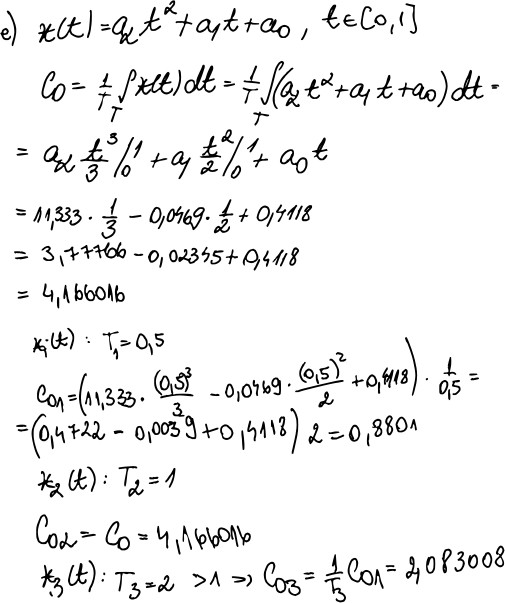 e) x(t) = a₂t² + a₁t + a₀ , t ∈ [0,1]
C₀ = 1/T ∫_T x(t) dt = 1/T ∫_T (a₂t² + a₁t + a₀) dt =
= a₂ t³/3 |₀¹ + a₁ t²/2 |₀¹ + a₀t
= 11,333 · 1/3 - 0,0469 · 1/2 + 0,4118
= 3,77766 - 0,02345 + 0,4118
= 4,166016
x₁(t) : T₁ = 0,5
C₀₁ = (11,333 · (0,5)³/3 - 0,0469 · (0,5)²/2 + 0,4118) · 1/0,5 =
= (0,4722 - 0,0039 + 0,4118) 2 = 0,8801
x₂(t) : T₂ = 1
C₀₂ = C₀ = 4,166016
x₃(t) : T₃ = 2 > 1 => C₀₃ = 1/T₃ C₀₁ = 2,083008